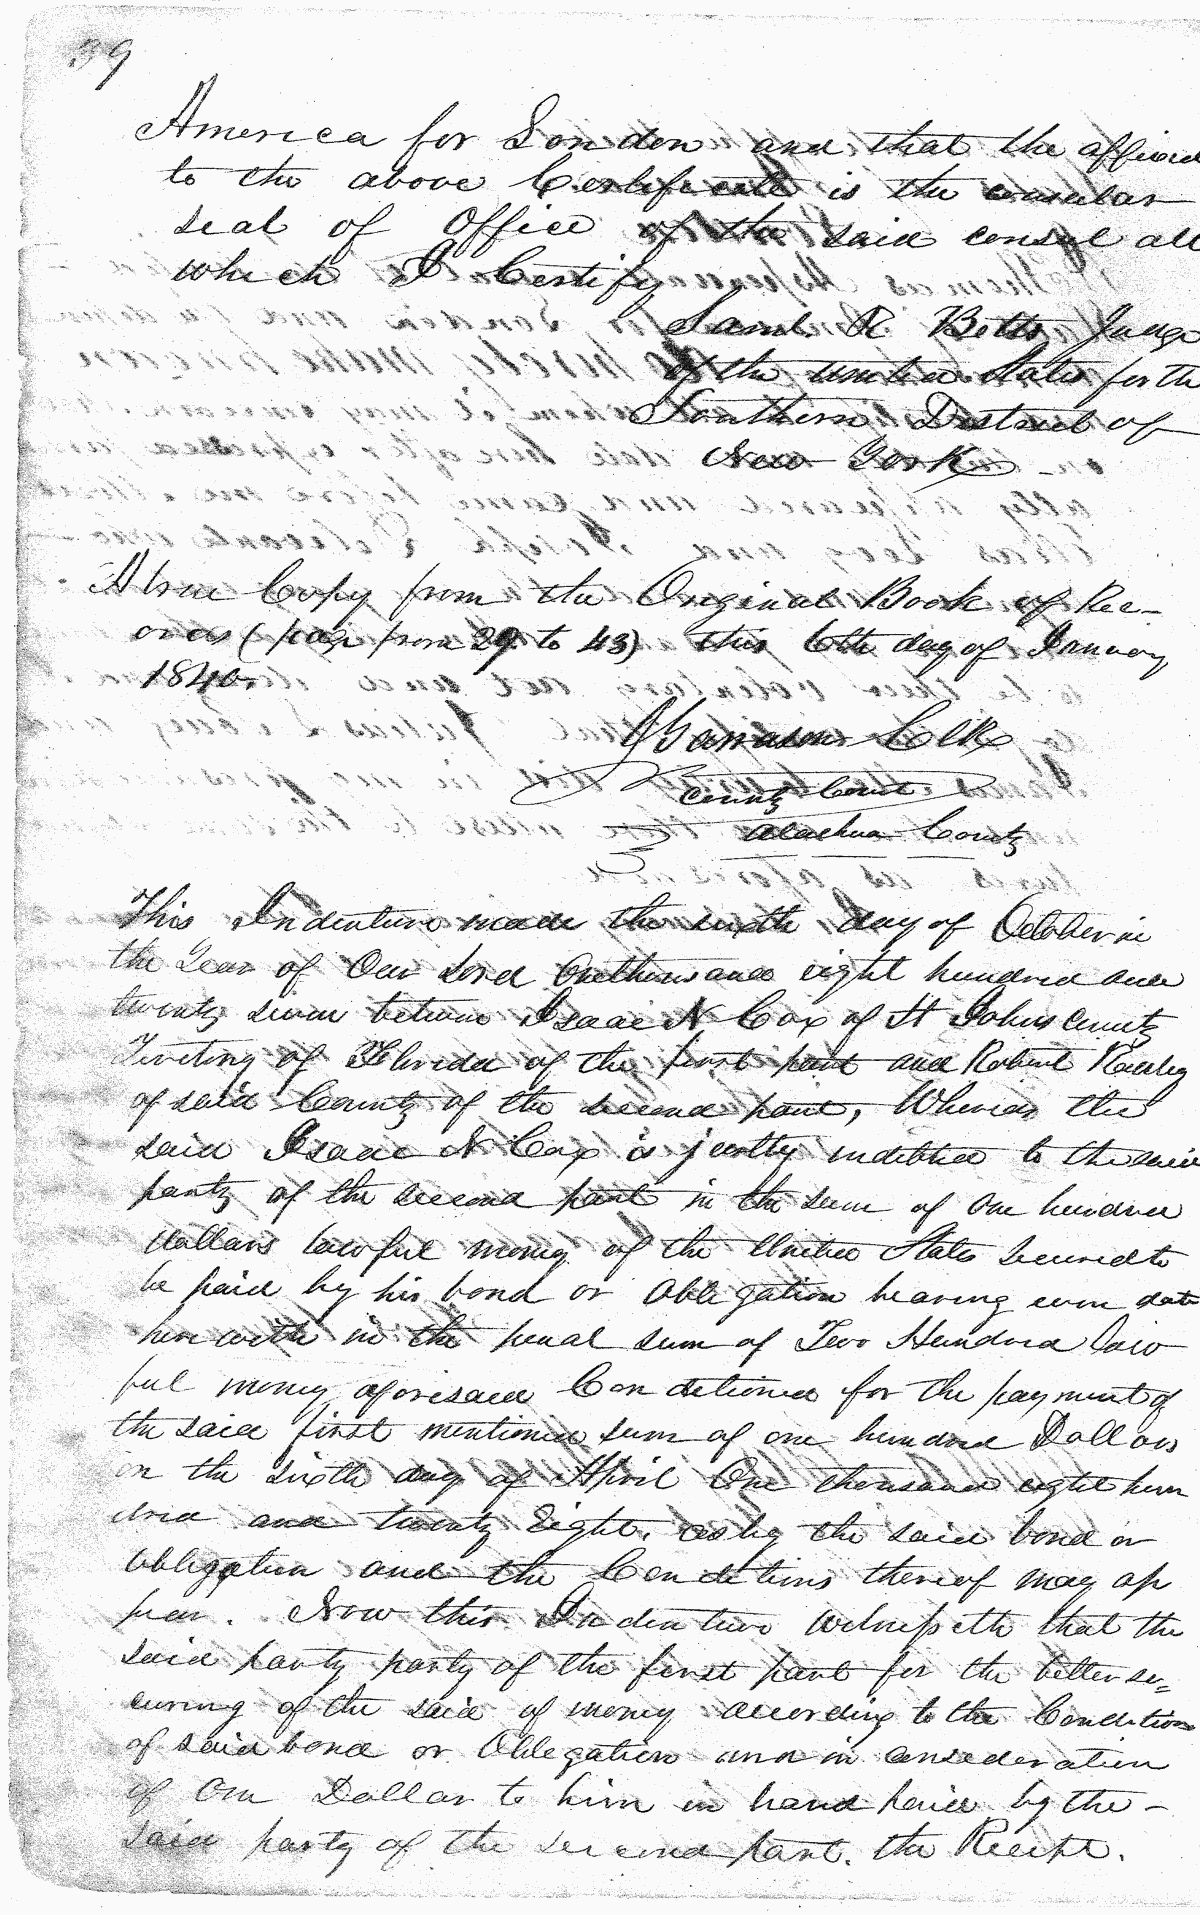 39
America for London and that the affixed
to the above Certificate is the consular
seal of Office of the said consul all
which I Certify
Saml. R Betts Judge
of the united States for the
Southern District of
New York
A true Copy from the Original Book of Rec-
ords (page from 29 to 43) this 6th day of January
1840.
Clk
County Court
Alachua County
This Indenture made the sixth day of October in
the Year of Our Lord One thousand eight hundred and
twenty seven between Isaac N Cox of St Johns County
Teritory of Florida of the first part and Robert
of said County of the second part, Whereas the
said Isaac N Cox is justly indebted to the said
party of the second part in the sum of one hundred
dollars lawful money of the United States secured to
be paid by his bond or obligation bearing even date
herewith in the penal sum of Two Hundred law
ful money aforesaid Conditioned for the payment of
the said first mentioned sum of one hundred Dollars
on the sixth day of April One thousand eight hun
dred and twenty Eight, as by the said bond or
obligation and the Conditions thereof may ap
pear. Now this Indenture witnesseth that the
said party party of the first part for the better se=
curing of the said of money according to the Condition
of said bond or Obligation and in consideration
of One Dollar to him in hand paid by the -
said party of the second part. the Receipt.